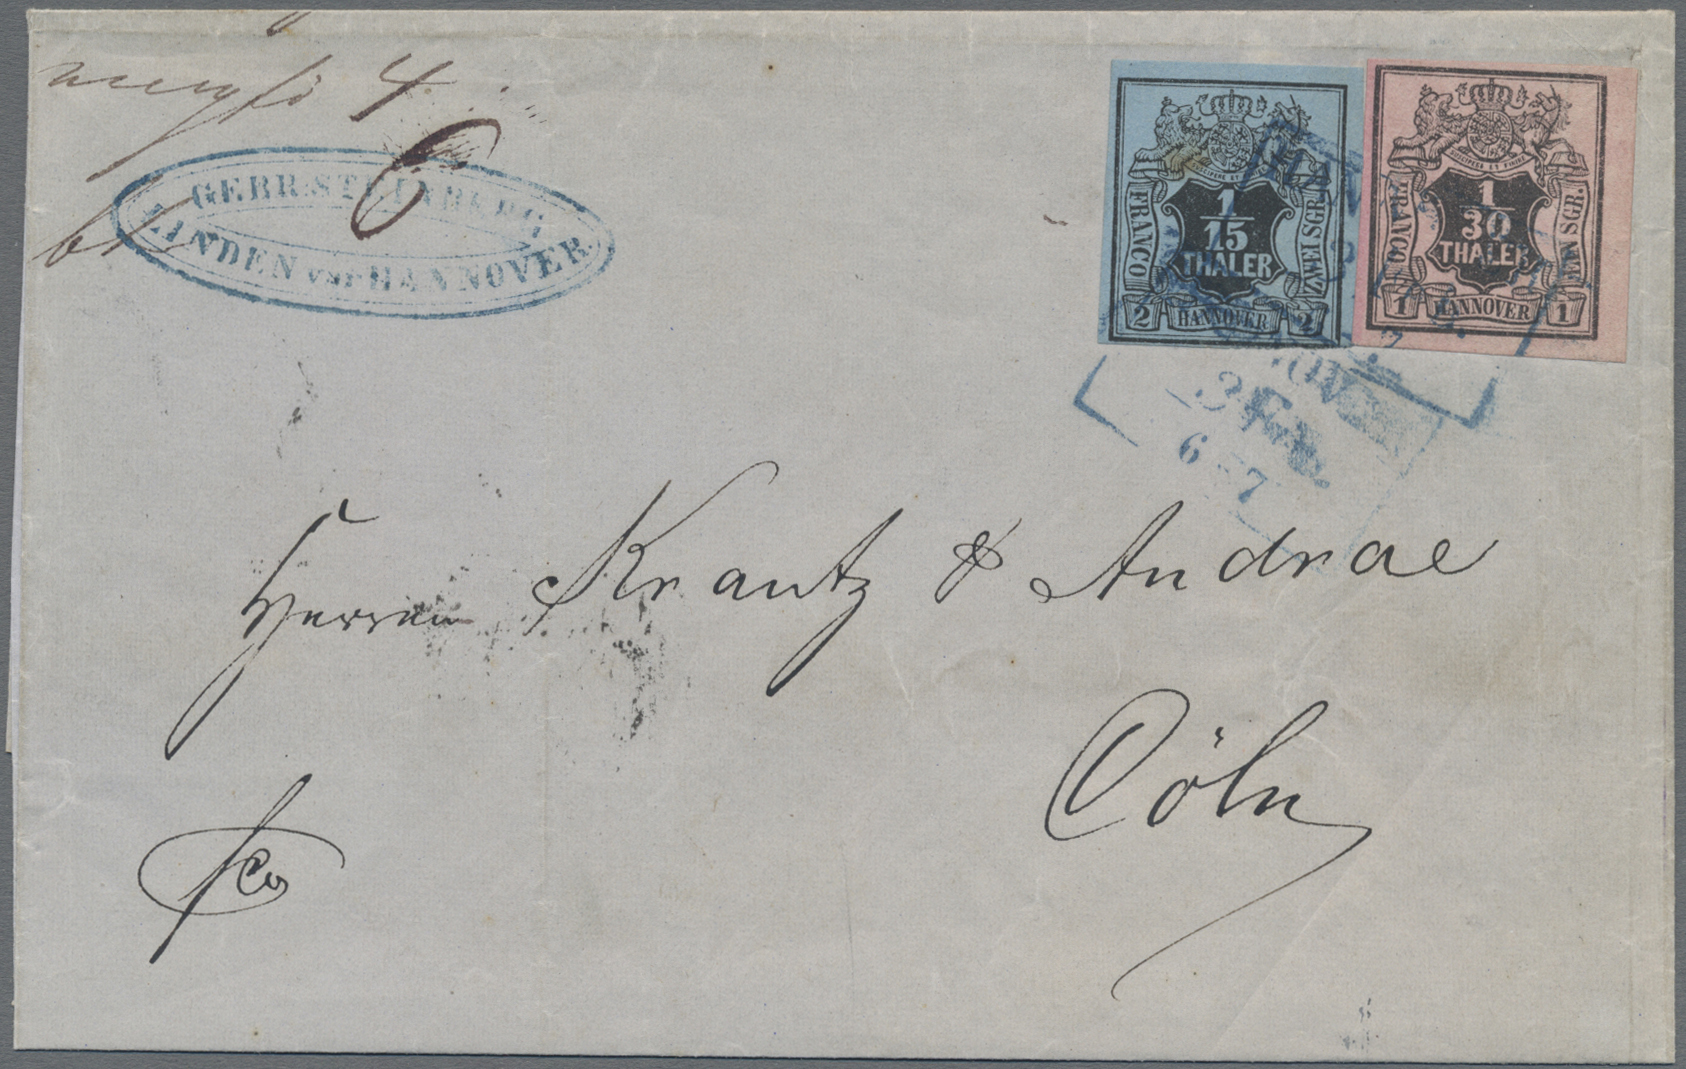 4
6
GEBR: STEINBERG
LINDEN vor HANNOVER
SUSCIPERE ET FINIRE
FRANCO
1
15
THALER
ZWEI SGR.
2 HANNOVER 2
SUSCIPERE ET FINIRE
FRANCO
1
30
THALER
EIN SGR.
1 HANNOVER 1
HANNOVER
6 - 7
Herren Krantz & Andrae
Cöln
fco